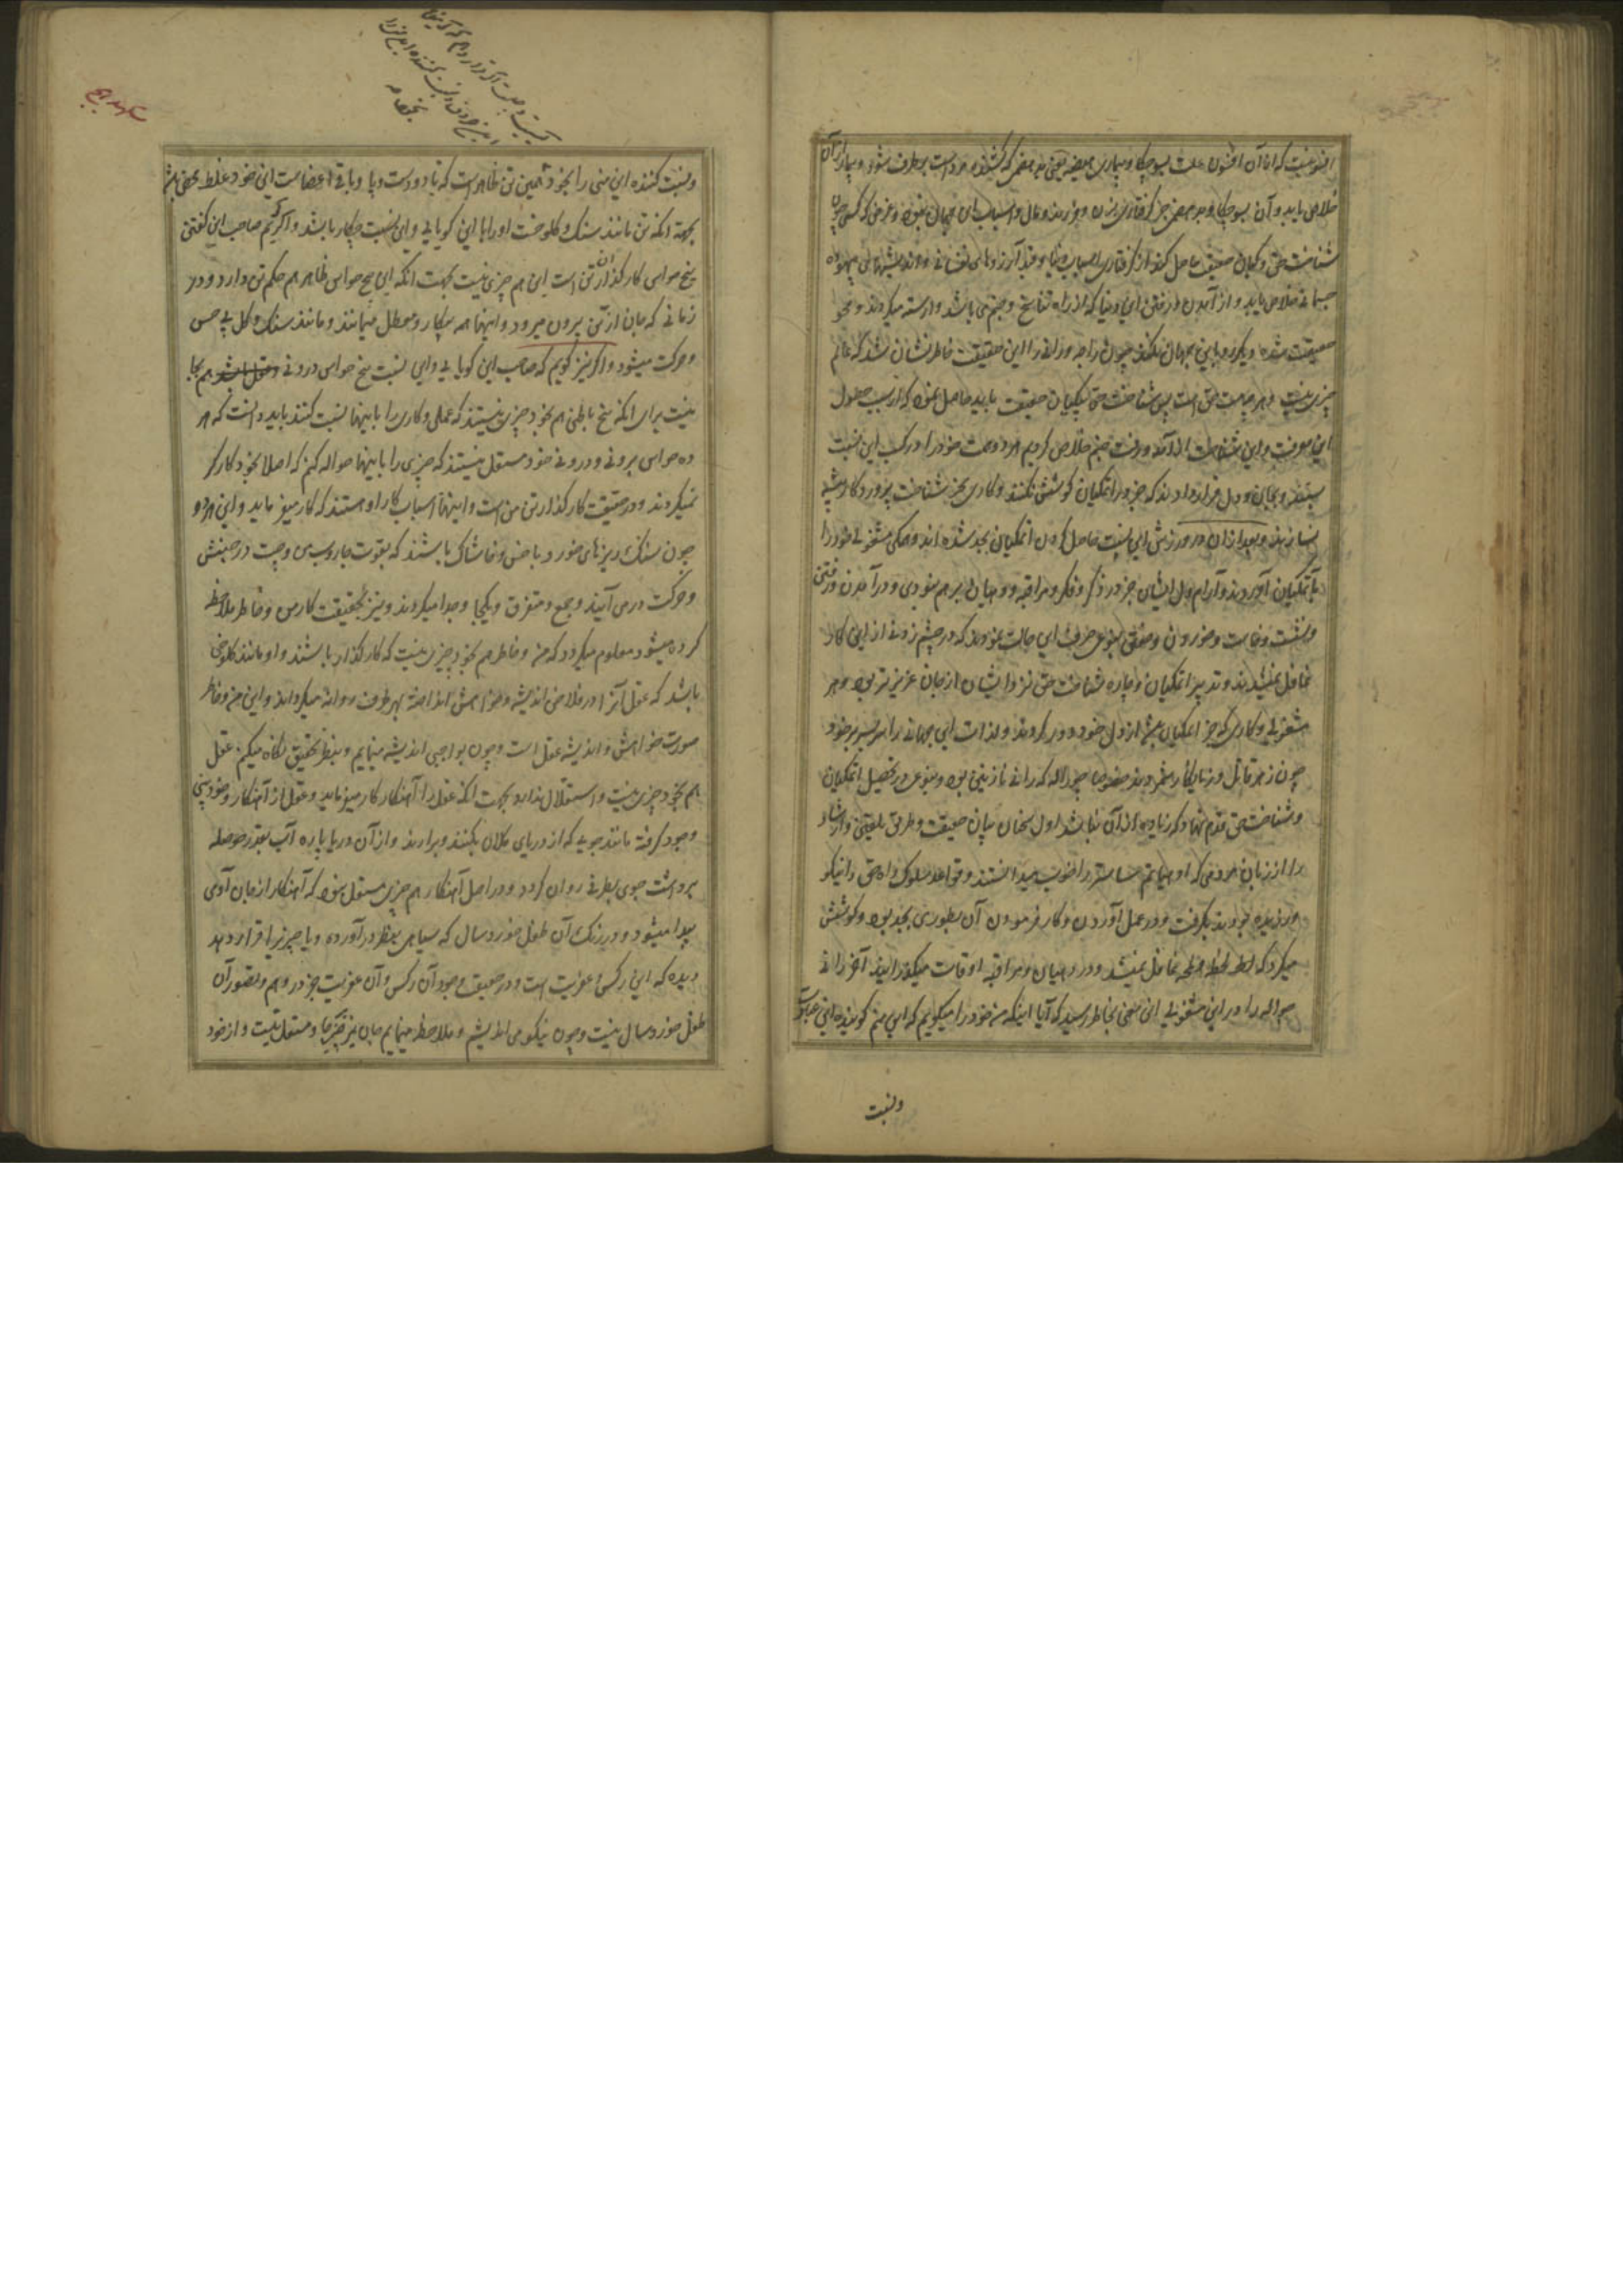 افسونیست که از آن افسون علت بسوچکا و بیماری هیضه یعنی بدهضمی که کشنده مردم است برطرف شود و بیمار از آن
خلاص یابد و آن بسوچکا و بدهضمی جز گرفتاری بزن و فرزند و مال و اسباب این جهان نبود و غرض که کسی چون
شناخت حق و گیان حقیقت حاصل کند از گرفتاری اسباب دنیا و قید آرزوهای نفسانی و اندیشهای بیهوده
جسمانی خلاص یابد و از آمدن و رفتن این دنیا که از راه تناسخ و جنم می باشد وارسته میگردد و محو
حقیقت شده دیگر رو باین جهان نکند چون راجه و رانی را این حقیقت خاطرنشان شد که عالم
چیزی نیست و هر چه هست حق است پس شناخت حق و گیان حقیقت باید حاصل نمود که از سبب حصول
این معرفت و این شناخت از آمد و رفت جنم خلاص گردیم هر دو همت خود را در کسب این نسبت
بستند و بجان و دل قرار دادند که جز در اتمگیان کوشش نکنند و کاری بجز شناخت پروردگار پیشه
نسازند و بعد از آن در ورزش این نسبت حاصل کردن اتمگیان بجد شده اند و همگی مشغولی خود را
باتمگیان آوردند و آرام دل ایشان جز در ذکر و فکر و مراقبه و دهیان برهم نبودی و در آمدن و رفتن
و نشست و خاست و خوردن و خفتن بنوعی صرف این حالت نمودند که در چشم زدنی از این کار
غافل نمیشدند و تدبیر اتمگیان و چاره شناخت حق نزد ایشان از جان عزیزتر بود و هر
مشغولی و کاری که جز اتمگیان باشد از دل خود دور کردند و لذات این جهانی را سربسر بر خود
چون زهر قاتل و زیانکار شمردند خصوصا چوداله که رانی نازنین بود بنوعی در تحصیل اتمگیان
و شناخت حق قدم نهاد که زیاده از آن نباشد اول سخنان بیان حقیقت و طرق تلقین و ارشاد
را از زبان مردمی که ادهیاتم ساستر را خوب میدانستند و قواعد سلوک راه حق را نیکو
ورزیده بودند بگرفت و در عمل آوردن و کار فرمودن آن بطوری بجد بود و کوشش
میکرد که لحظه لحظه غافل نمیشد و در دهیان و مراقبه اوقات میگذرانید آخر رانی
چوداله را در این مشغولی این معنی بخاطر رسید که آیا اینکه من خود را میگویم که این منم گوینده این عبارت
ونسبت
ونسبت کننده این منی را بخود همین تن ظاهر است که تا دو دست و پا و باقی اعضاست این خود غلط محض باشد
بجهة انکه تن مانند سنک و کلوخست او را با این کویایی و این نسبت چکار باشد و اگر گویم صاحب این کفتن
پنج حواس کارگذاران تن است این هم چیزی نیست بجهت انکه این پنج حواس ظاهر هم حکم تن دارد و در
زمانی که جان از تن بیرون میرود و اینها همه بیکار و معطل میمانند و مانند سنک و کل بی حس
و حرکت میشود و اگر نیز گویم که صاحب این کویایی و این نسبت پنج حواس درونی و عقل باشد هم بجا
نیست برای انکه پنج باطنی هم بخود چیزی نیستند که عملی و کاری را باینها نسبت کنند باید دانست که هر
ده حواس برونی و درونی خود مستقل نیستند که چیزی را باینها حواله کنم که اصلا بخود کارگر
نمیگردند و در حقیقت کارگذار تن من است و اینها اسباب کار او هستند که کار میفرماید و این هر دو
چون سنک ریزهای خورد یا خس و خاشاک باشند که بقوت جاروب می و چست در جنبش
و حرکت درمی آیند و جمع و متفرق و یکجا و جدا میگردند و نیز بحقیقت کار من و خاطر ملاحظه
کرده میشود معلوم میگردد که من و خاطر هم بخود چیزی نیست که کارگذار باشند و او مانند کلوخی
باشد که عقل آنرا در فلاخن اندیشه و خواهش انداخته بهر طرف روانه میگرداند و این من و خاطر
صورت خواهش و اندیشه عقل است و چون بواجبی اندیشه مینمایم و بنظر تحقیق نگاه میکنم عقل
هم بخود چیزی نیست و استقلال ندارد بجهت انکه عقل را آهنکار کار میفرماید و عقل از آهنکار و خودبینی
وجود گرفته مانند جویی که از دریای کلان بکنند و برارند و از آن دریا پاره آب بقدر حوصله
برداشت جوی بطرفی روان گردد و در اصل آهنکار هم چیزی مستقل نبود که آهنکار از جان آدمی
پیدا میشود و در رنگ آن طفل خوردسال که سیاهی بنظر درآورده و یا چیزی قرار دهد
دیده که این رکس عفریت است و در حقیقت وجود آن رکس و آن عفریت جز در وهم و تصور آن
طفل خوردسال نیست و چون نیکو می اندیشم و ملاحظه مینمایم جان نیز برجا و مستقل نیست و از خود